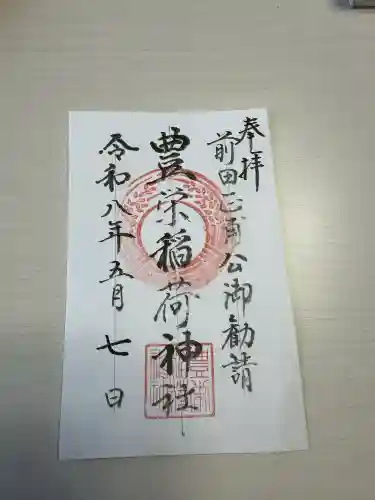 奉拝
前田正甫公御勧請
豊栄稲荷神社
令和八年五月七日